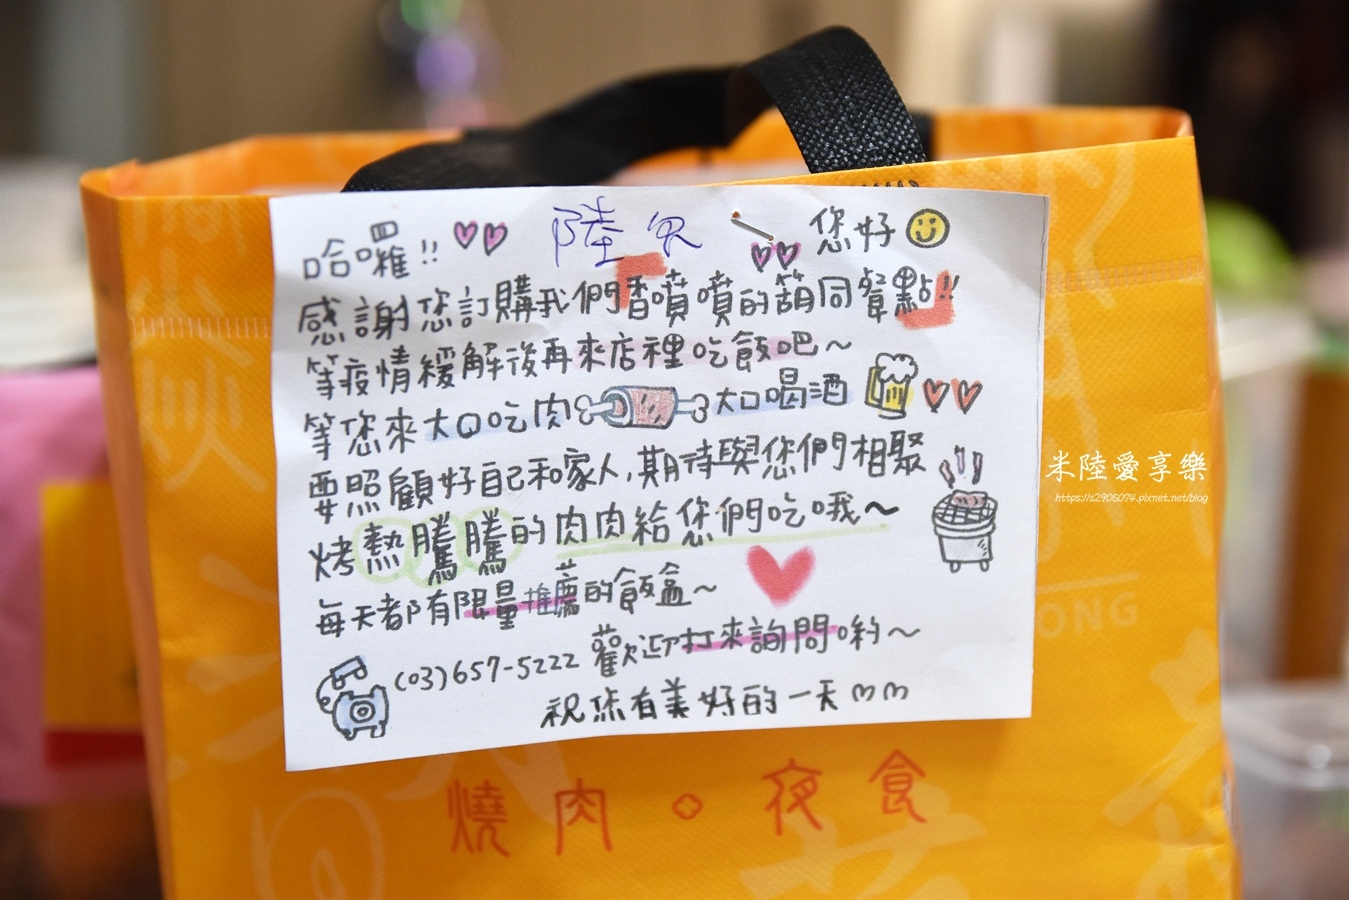 哈囉!! 陸 您好
感謝您訂購我們香噴噴的葫同餐點!!
等疫情緩解後再來店裡吃飯吧~
等您來大口吃肉 大口喝酒
要照顧好自己和家人,期待與您們相聚
烤熱騰騰的肉肉給您們吃哦~
每天都有限量推薦的飯盒~
(03)657-5222 歡迎打來詢問喲~
祝您有美好的一天
燒肉。夜食
米陸愛享樂
https://s2905074.pixnet.net/blog
ONG